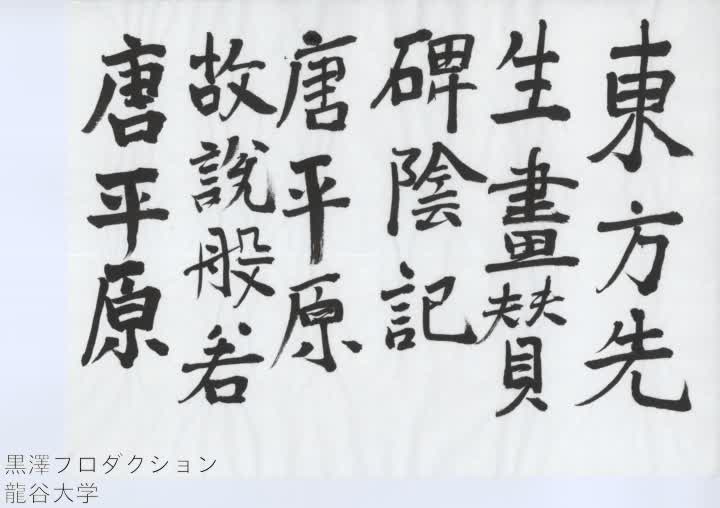 東方先
生畫賛
碑陰記
唐平原
故說般若
唐平原
黒澤プロダクション
龍谷大学